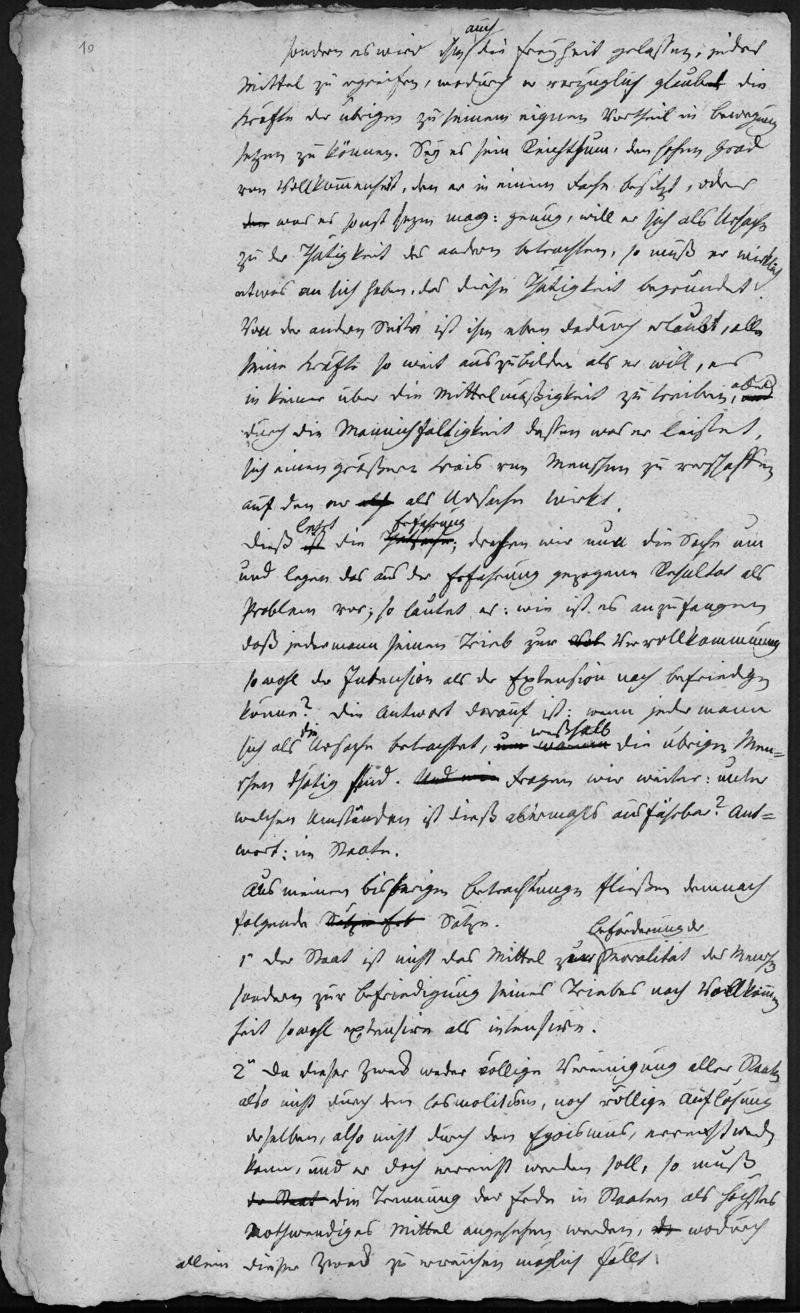 10
auch
sondern es wird ihm die Freyheit gelassen, jedes
Mittel zu ergreifen, wodurch er vorzüglich glaubt die
Kräfte der übrigen zu seinem eignen Vortheil in Bewegung
setzen zu können. Sey es sein Reichthum, den hohen Grad
von Vollkommenheit, den er in einem Fache besitzt, oder
der was es sonst seyn mag: genug, will er sich als Ursache
zu der Thätigkeit des andern betrachten, so muß er wirklich
etwas an sich haben, das diese Thätigkeit begründet.
Von der andern Seite ist ihm eben dadurch erlaubt, alle
seine Kräfte so weit auszubilden als er will, es
in keiner über die Mittelmäßigkeit zu treiben, aber und
durch die Mannichfaltigkeit dessen was er leistet,
sich einen größern Krais von Menschen zu verschaffen
auf den er als als Ursache wirkt.
lehrt Erfahrung
Dieß ist die drehen wir nun die Sache um
und legen das aus der Erfahrung gezogene Resultat als
Problem vor; so lautet er: wie ist es anzufangen
daß jedermann seinen Trieb zur Vol Vervollkommnung
sowohl der Intension als der Extension nach befriedigen
könne? Die Antwort darauf ist: wenn jedermann
die weßhalb
sich als Ursache betrachtet, um warum die übrigen Men=
schen thätig sind. Und wie Fragen wir weiter: unter
welchen Umständen ist dieß abermahls ausführbar? Ant=
wort: im Staate.
Aus meinen bisherigen Betrachtungen fließen demnach
folgende Sätze Sätze.
Beförderung der
1° Der Staat ist nicht das Mittel zur Moralität des Menschen
sondern zur Befriedigung seines Triebes nach Vollkommen
heit sowohl extensive als intensive.
2° Da dieser Zweck weder völlige Vereinigung aller Staaten
also nicht durch den Cosmolitism, noch völlige Auflösung
derselben, also nicht durch den Egoismus, erreicht werden
kann, und er doch erreicht werden soll, so muß
der Staat die Trennung der Erde in Staaten als höchstes
nothwendiges Mittel angesehen werden, da wodurch
allein dieser Zweck zu erreichen möglich fällt.